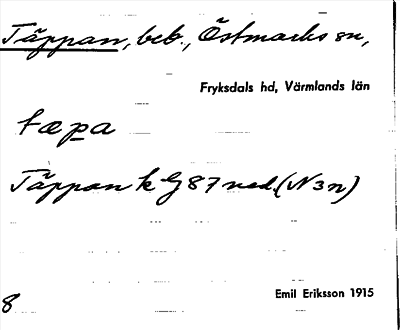 Täppan, beb., Östmarks sn,
Fryksdals hd, Värmlands län
tæpa
Täppan k G 87 ned. (N3n)
Emil Eriksson 1915
8